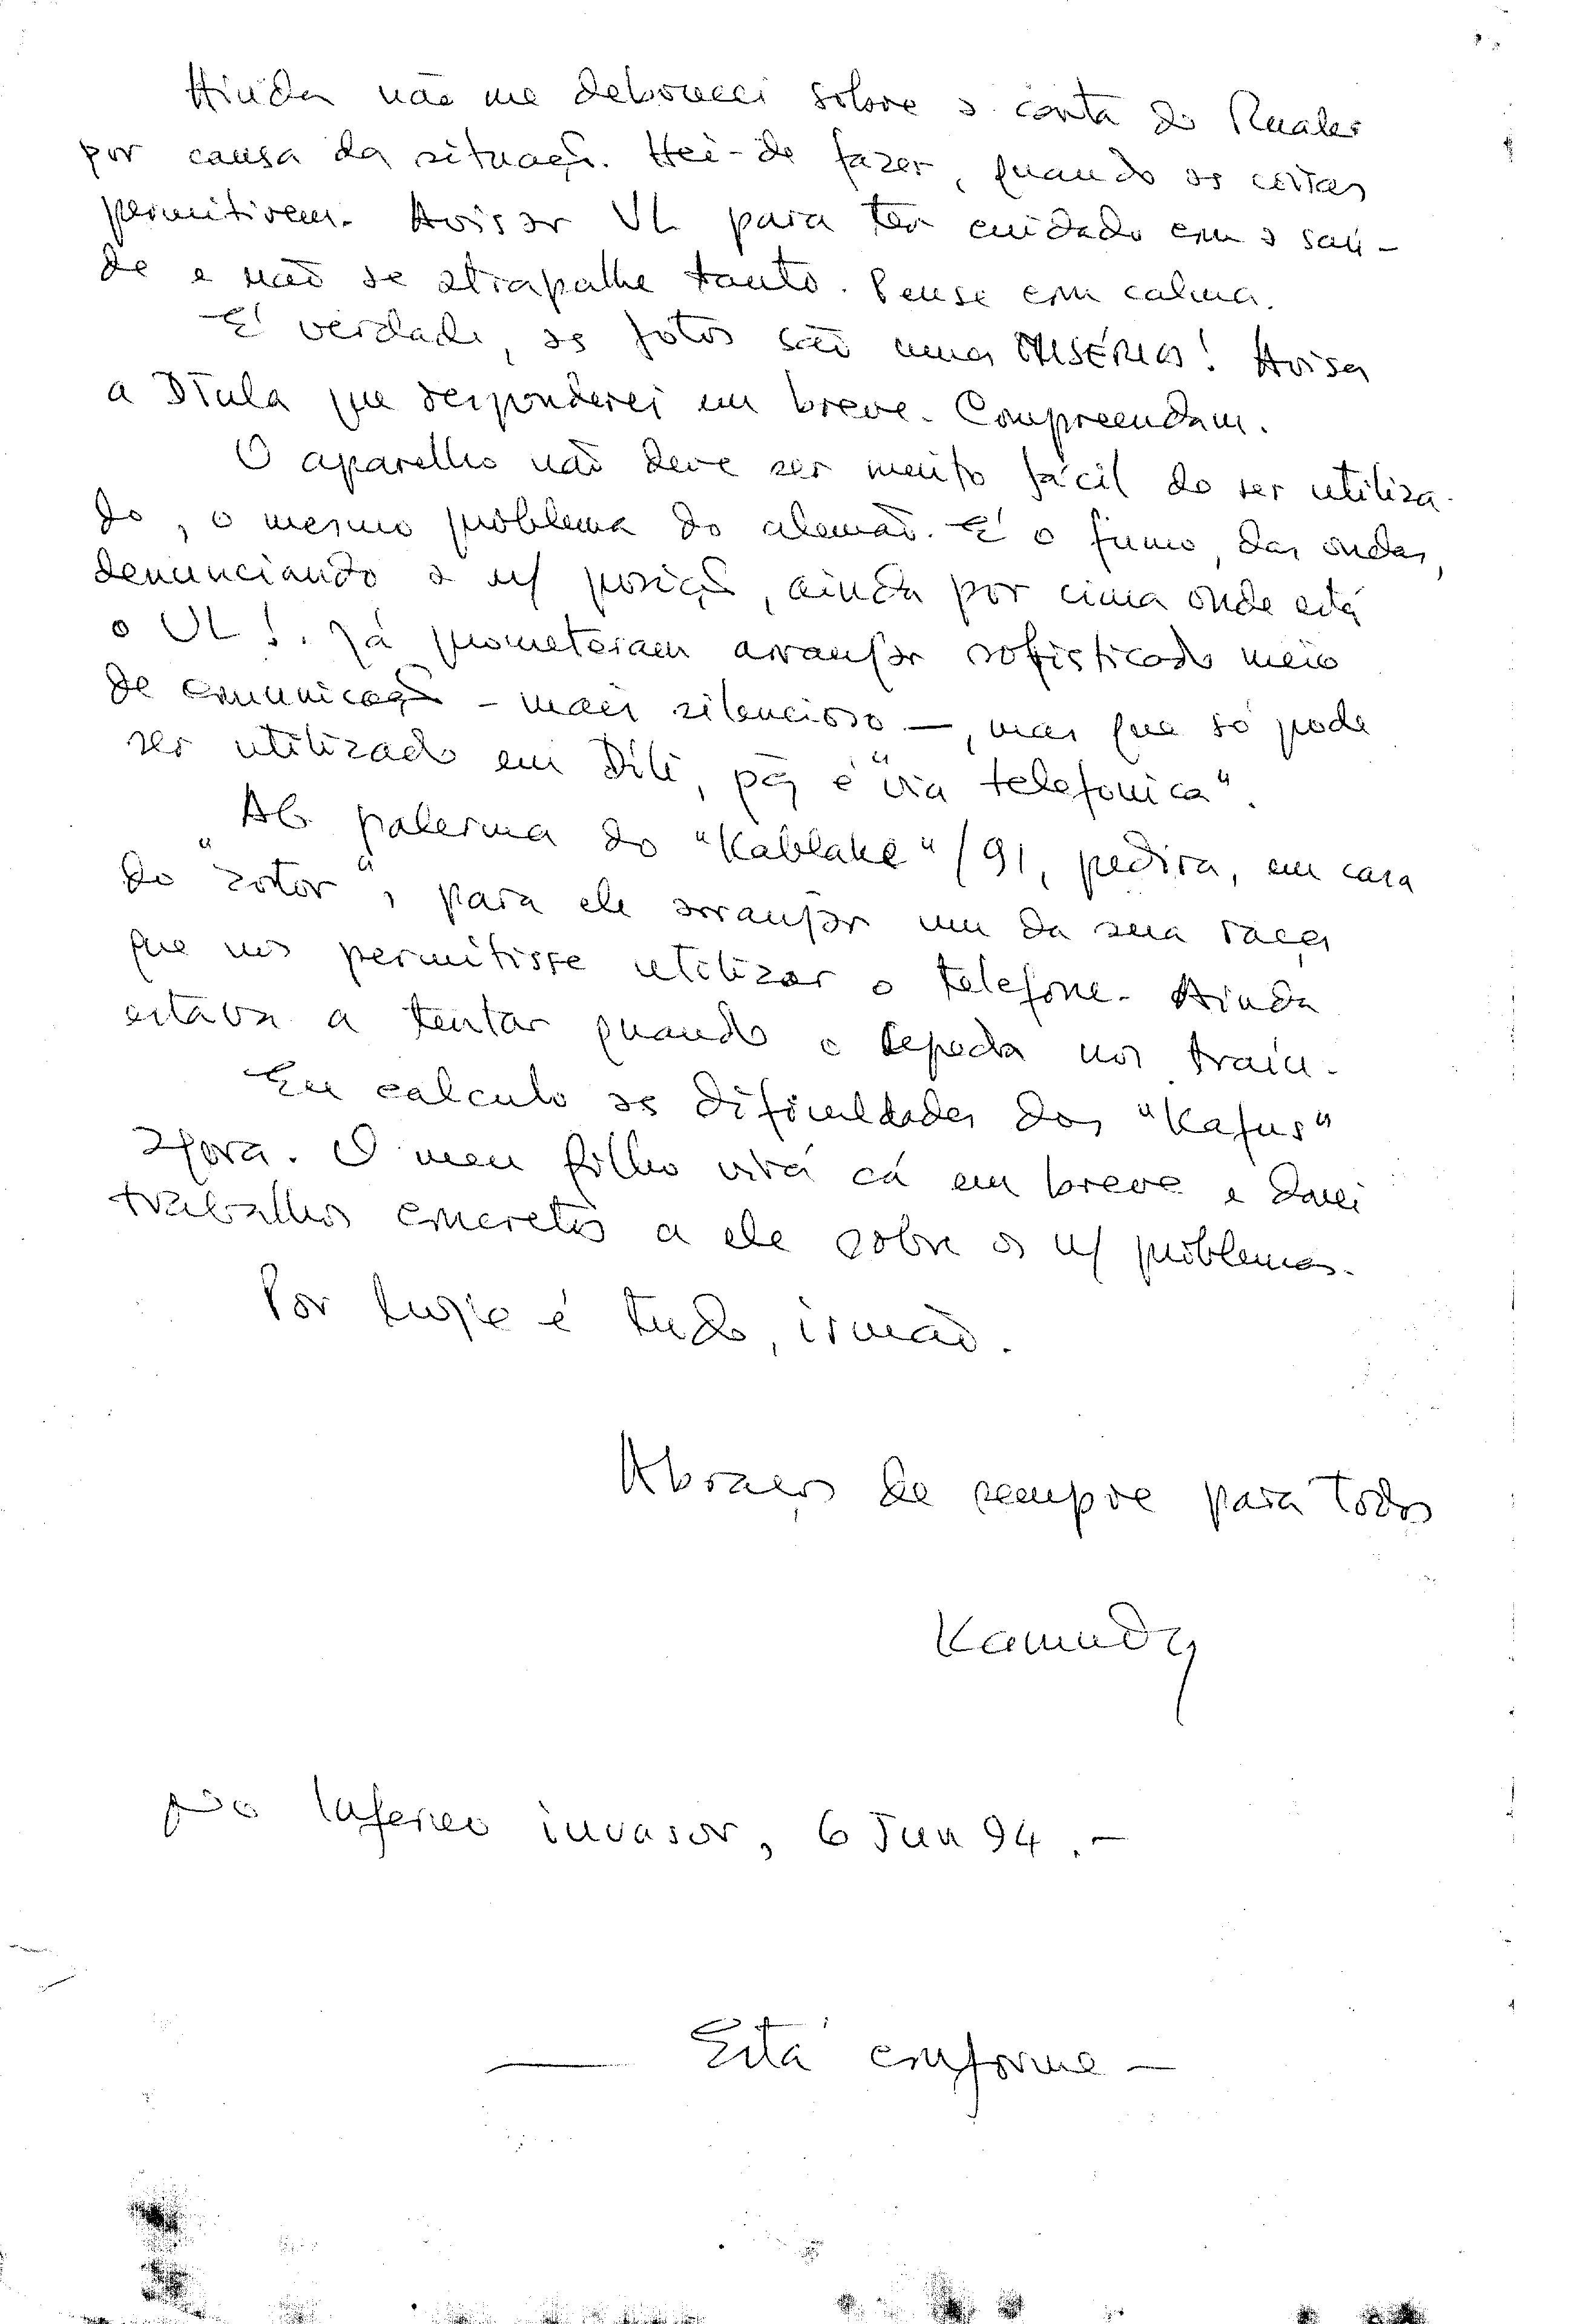 Ainda não me debrucei sobre a carta do Ruales
por causa da situaçã. Hei-de fazer, quando as coisas
permitirem. Avisar VL para ter cuidado com a saú-
de e não se atrapalhe tanto. Pense com calma.
É verdade, as fotos são uma MISÉRIA! Avisa
a DTula que responderei em breve. Compreendam.
O aparelho não deve ser muito fácil do ser utiliza-
do, o mesmo problema do alemão. É o fumo, das ondas,
denunciando a n/ posiçã, ainda por cima onde está
o VL!. Já prometeram arranjar sofisticado meio
de comunicaçã - mais silencioso -, mas que só pode
ser utilizado em Díli, pq é "via telefonica".
Ab palerma do "Kablake"/91, pedira, em casa
do "zotor", para ele arranjar um da sua raça
que nos permitisse utilizar o telefone. Ainda
estava a tentar quando o nos traíu.
Eu calculo as dificuldades dos "Kafus"
agora. O meu filho virá cá em breve e darei
trabalhos concretos a ele sobre os n/ problemas.
Por hoje é tudo, irmão.
Abraços de sempre para todos
Kamudy
No Inferno invasor, 6 Jun 94.-
— Está conforme —